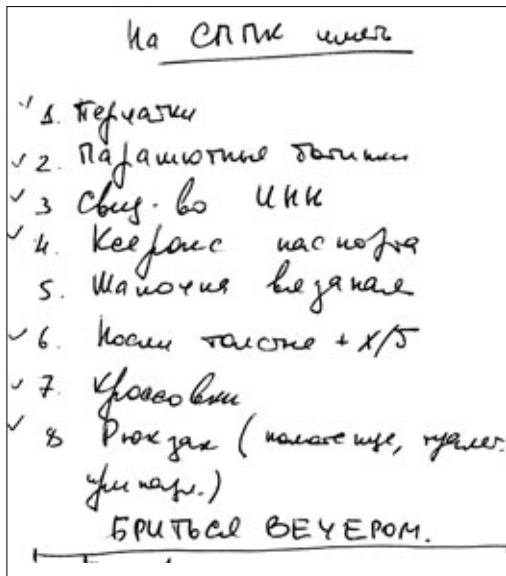 На СППК иметь
✓ 1. Перчатки
✓ 2. Парашютные ботинки
✓ 3 Свид-во ИНН
✓ 4. Ксерокс паспорта
5. Шапочка вязаная
✓ 6. Носки толстые + х/б
✓ 7. Кроссовки
✓ 8 Рюкзак (полотенце, туалет.
принадл.)
БРИТЬСЯ ВЕЧЕРОМ.